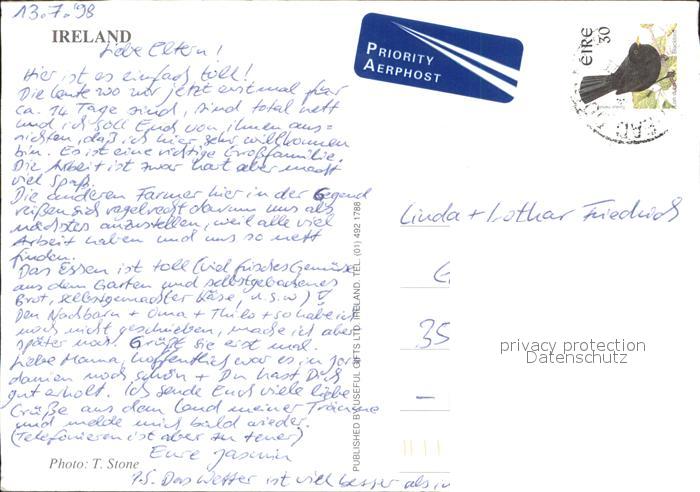 13.7.'98
IRELAND
Liebe Eltern!
Hier ist es einfach toll!
Die Leute wo wir jetzt erstmal für
ca. 14 Tage sind, sind total nett
und ich soll Euch von ihnen aus=
richten, daß ich hier sehr willkommen
bin. Es ist eine richtige Großfamilie.
Die Arbeit ist zwar hart aber macht
viel Spaß.
Die anderen Farmer hier in der Gegend
reißen sich regelrecht darum uns als
nächstes anzustellen, weil alle viel
Arbeit haben und uns so nett
finden.
Das Essen ist toll (viel frisches Gemüse
aus dem Garten und selbstgebackenes
Brot, selbstgemachter Käse, u.s.w)!
Den Nachbarn + Oma + Thilo + so habe ich
noch nicht geschrieben, mache ich aber
später noch. Grüßt sie erst mal.
Liebe Mama, hoffentlich war es in Jor-
danien noch schön + Du hast Dich
gut erholt. Ich sende Euch viele liebe
Grüße aus dem Land meiner Träume
und melde mich bald wieder.
(Telefonieren ist aber zu teuer)
Eure Jasmin
P.S. Das Wetter ist viel besser als in
Photo: T. Stone
PUBLISHED BY USEFUL GIFTS LTD. IRELAND. TEL. (01) 492 1788
PRIORITY
AERPHOST
ÉIRE 30
Linda + Lothar Friedrich
G
35
privacy protection
Datenschutz